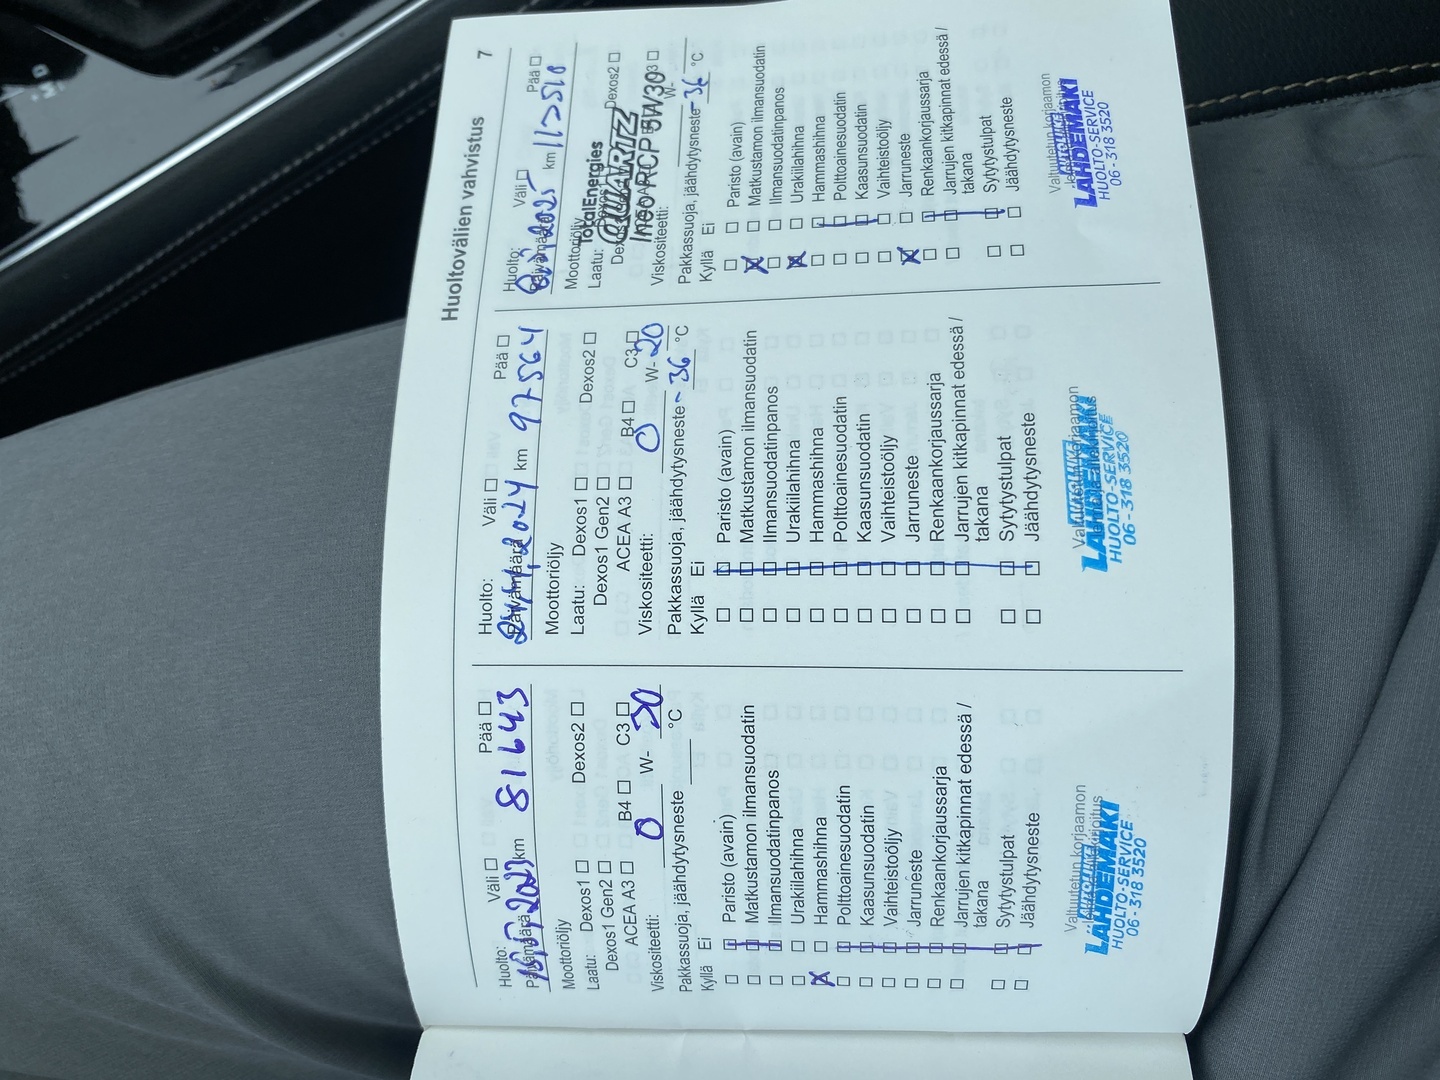 Huoltovälien vahvistus 7
Huolto: Väli Pää
Päivämäärä 2023 km 81643
Moottoriöljy
Laatu: Dexos1 Dexos2
Dexos1 Gen2
ACEA A3 B4 C3
Viskositeetti: 0 W- 30
Pakkassuoja, jäähdytysneste °C
Kyllä Ei
Paristo (avain)
Matkustamon ilmansuodatin
Ilmansuodatinpanos
Urakiilahihna
Hammashihna
Polttoainesuodatin
Kaasunsuodatin
Vaihteistoöljy
Jarruneste
Renkaankorjaussarja
Jarrujen kitkapinnat edessä /
takana
Sytytystulpat
Jäähdytysneste
Valtuutetun korjaamon
AUTOLIIKE
LAHDEMAKI
HUOLTO-SERVICE
06 - 318 3520
Huolto: Väli Pää
Päivämäärä 2024 km 97564
Moottoriöljy
Laatu: Dexos1 Dexos2
Dexos1 Gen2
ACEA A3 B4 C3
Viskositeetti: 0 W- 20
Pakkassuoja, jäähdytysneste -36 °C
Kyllä Ei
Paristo (avain)
Matkustamon ilmansuodatin
Ilmansuodatinpanos
Urakiilahihna
Hammashihna
Polttoainesuodatin
Kaasunsuodatin
Vaihteistoöljy
Jarruneste
Renkaankorjaussarja
Jarrujen kitkapinnat edessä /
takana
Sytytystulpat
Jäähdytysneste
Valtuutetun korjaamon
AUTOLIIKE
LAHDEMAKI
HUOLTO-SERVICE
06 - 318 3520
Huolto: Väli Pää
Päivämäärä 2025 km
Moottoriöljy
TotalEnergies
Laatu: Dexos2
QUARTZ
Ineo RCP 5W30
Viskositeetti: W-
Pakkassuoja, jäähdytysneste -36 °C
Kyllä Ei
Paristo (avain)
Matkustamon ilmansuodatin
Ilmansuodatinpanos
Urakiilahihna
Hammashihna
Polttoainesuodatin
Kaasunsuodatin
Vaihteistoöljy
Jarruneste
Renkaankorjaussarja
Jarrujen kitkapinnat edessä /
takana
Sytytystulpat
Jäähdytysneste
Valtuutetun korjaamon
AUTOLIIKE
LAHDEMAKI
HUOLTO-SERVICE
06 - 318 3520